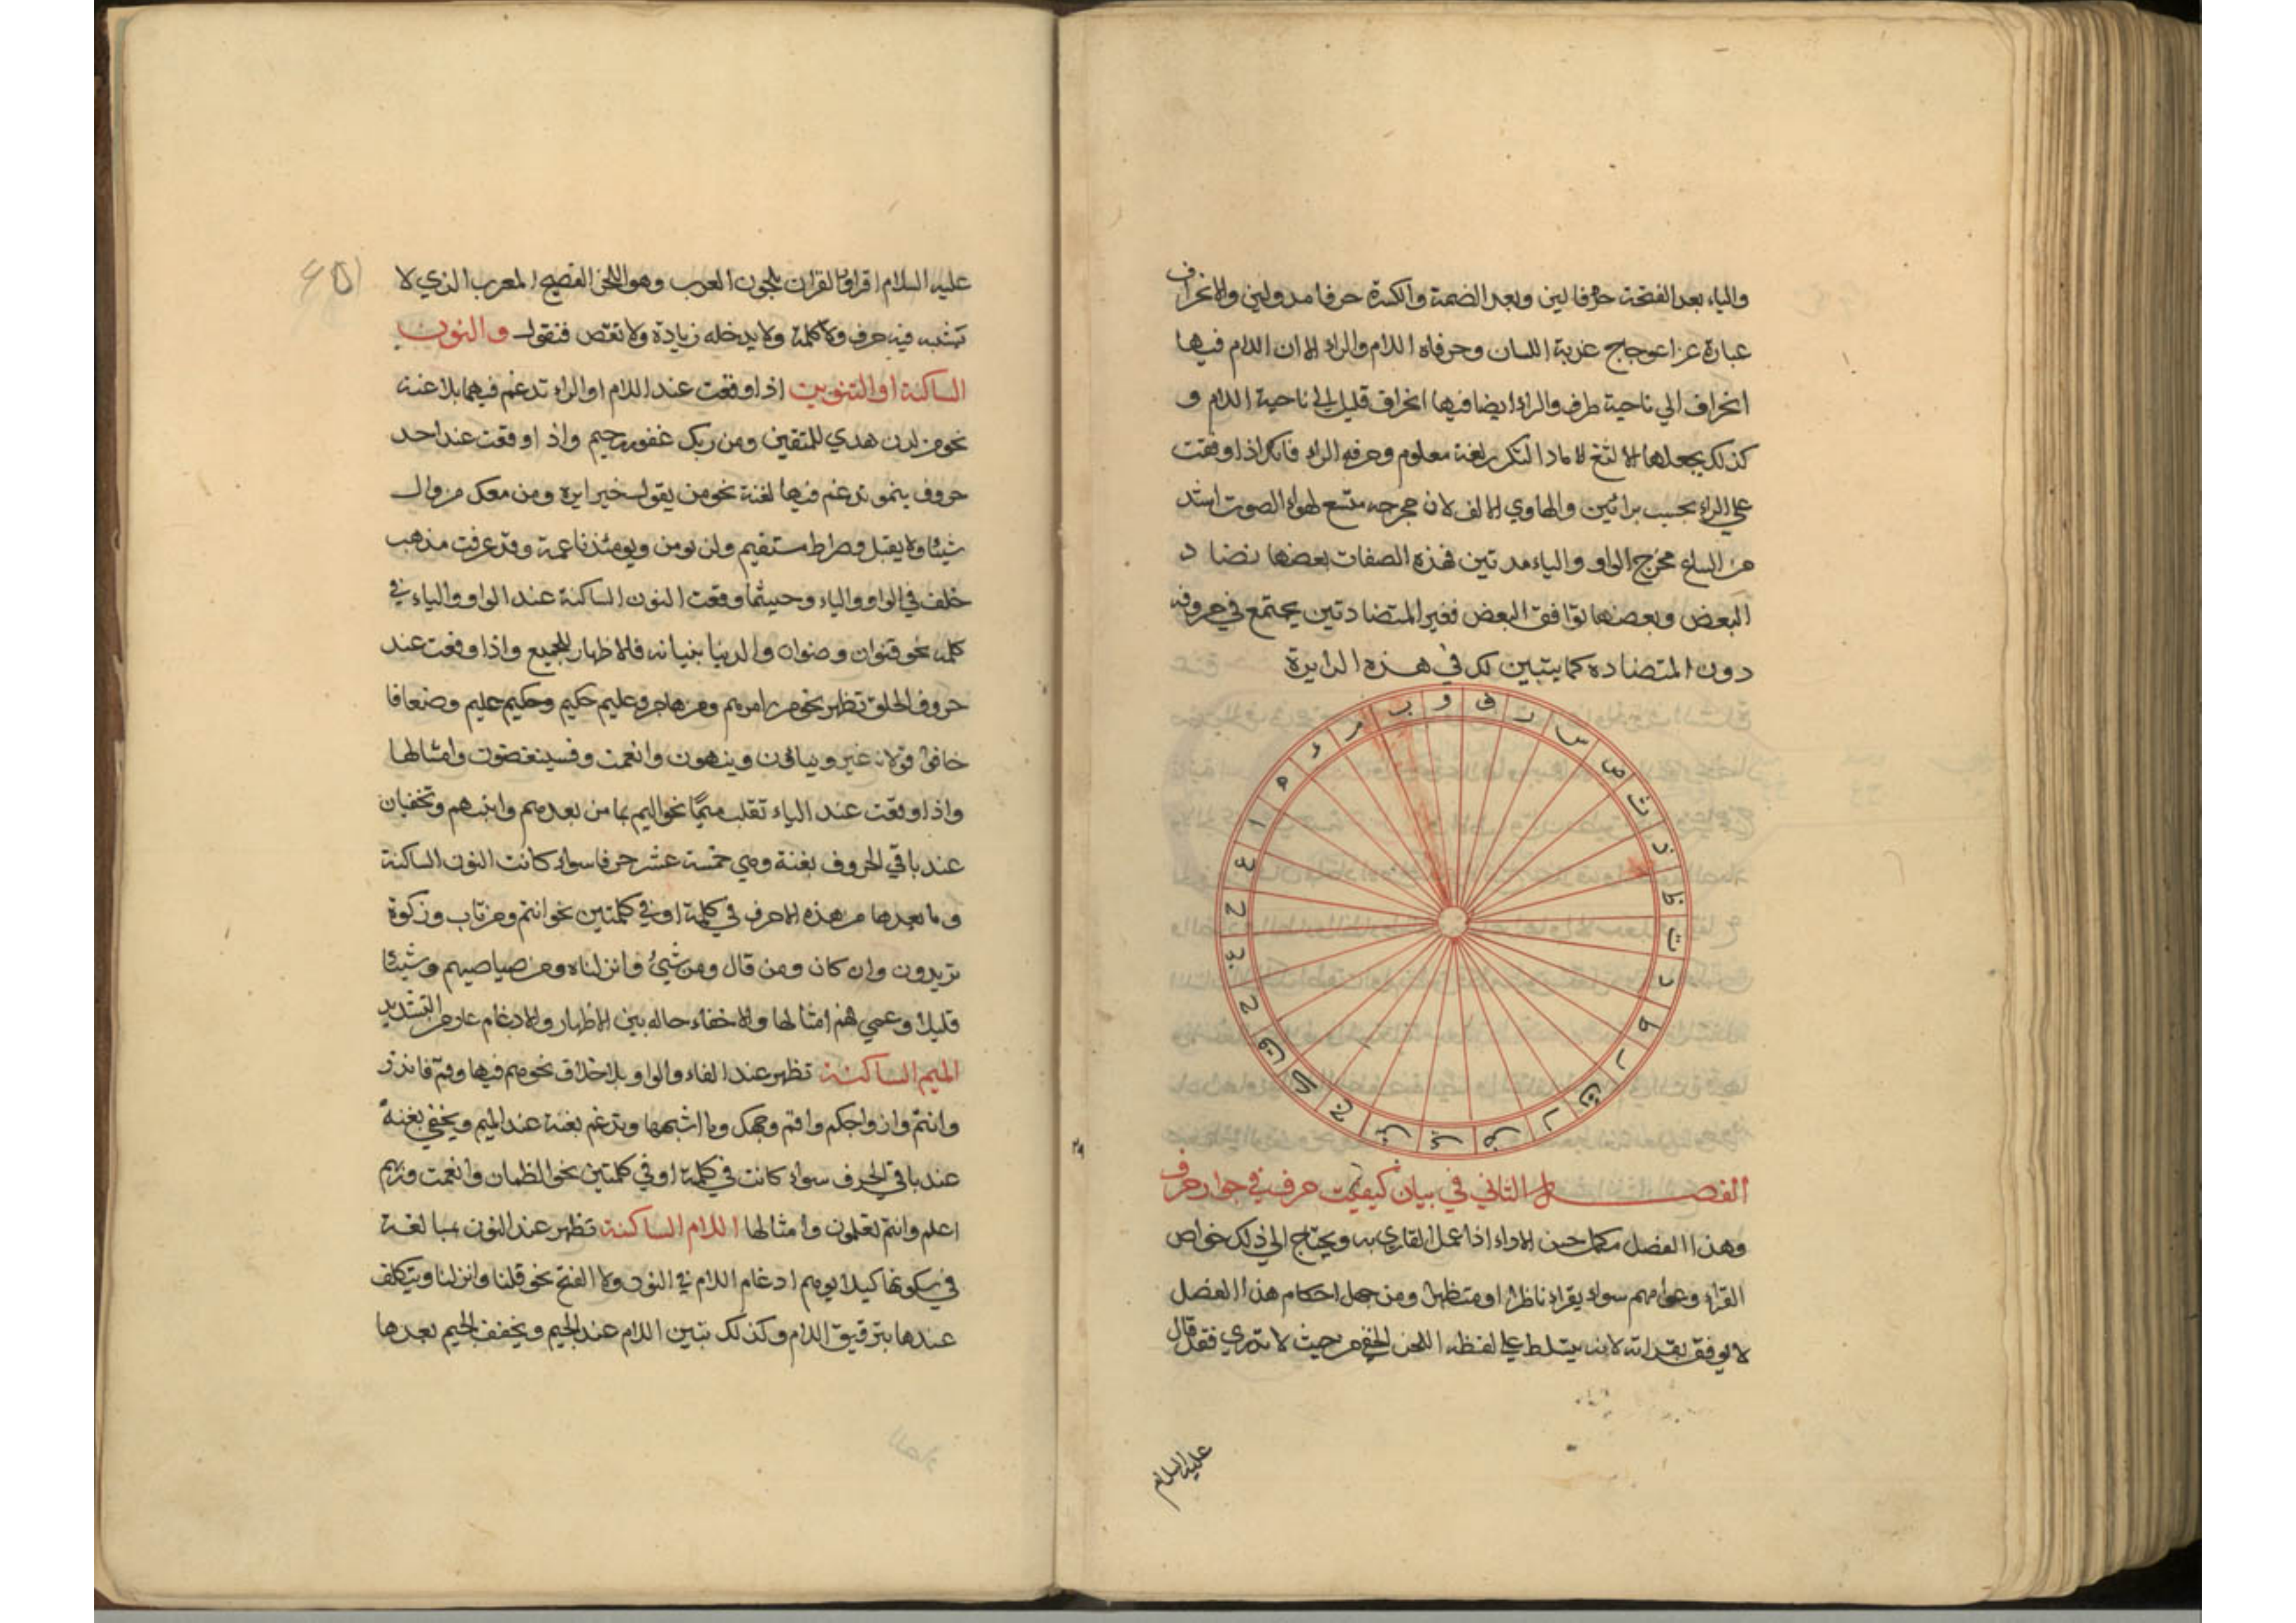 والياء بعد الفتحة حرفا لين وبعد الضمة والكسرة حرفا مد ولين والانحراف
عبارة عن اعوجاج عذبة اللسان وحرفاه اللام والراء الا ان اللام فيها
انحراف الي ناحية طرف والراء ايضا فيها انحراف قليل الي ناحية اللام و
كذلك يجعلها الالثغ لاما والتكرير لغة معلوم وحرفه الراء فانك اذا وقفت
علي الراء تحسب برائين والهاوي الالف لان مخرجه متسع لهواء الصوت اشد
من اتساع مخرج الواو والياء مدتين فهذه الصفات بعضها تضاد
البعض وبعضها توافق البعض فغير المتضادتين يجتمع في حروفه
دون المتضادة كما يتبين لك في هذه الدايرة
الفصل الثاني في بيان كيفيت حرف في جوار حرف
وهذا الفصل مكمل حسن الاداء اذا عمل القاري به ويحتاج الي ذلك خواص
القراء وعوامهم سواء يقراء ناظرا او متظهرا ومن جهل احكام هذا الفصل
لا يوفق بقراته لانه يتسلط علي لفظه اللحن الخفي من حيث لا تدري فقد قال
عليه السلام
عليه السلام اقراوا القران بلحون العرب وهو اللحن الفصيح المعرب الذي لا
تشبه فيه حرف ولا كلمة ولا يدخله زيادة ولا نقص فنقول والنون
الساكنة او التنوين اذا وقعت عند اللام او الراء تدغم فيهما بلا غنة
نحو من لدن هدي للمتقين ومن ربك غفور رحيم واذا وقعت عند احد
حروف ينمو تدغم فيها لغنة نحو من يقول خيرا يره ومن معك من وال
شيئا ولا يقبل وصراط مستقيم ولن نومن ويومئذ ناعمة وقد عرفت مذهب
خلف في الواو والياء وحيثما وقعت النون الساكنة عند الواو والياء في
كلمة نحو قنوان وصنوان والدنيا بنيانه فالاظهار للجميع واذا وقعت عند
حروف الحلق تظهر نحو من امرهم ومن هاجر وعليم حكيم وحكيم عليم وضعافا
خافوا قولا غير وينأون وينهون وانعمت وفسينغضون وامثالها
واذا وقعت عند الباء تقلب ميما نحو اليم بما من بعدهم وانبئهم وتخفيان
عند باقي الحروف بغنة وهي خمسة عشر حرفا سواء كانت النون الساكنة
وما بعدها من هذه الاحرف في كلمة او في كلمتين نحو انتم ومن تاب وزكوة
تريدون وان كان ومن قال ومن شيئ وانزلناه ومن صياصيهم وشيئا
قليلا وعمي فهم امثالها والاخفاء حاله بين الاظهار والادغام عار من التشديد
الميم الساكنة تظهر عند الفاء والواو بلا خلاف نحو هم فيها وقم فانذر
وانتم وازواجكم واقم وجهك وما اشبهها وتدغم بغنة عند الميم ويخفي بغنة
عند باقي الحرف سواء كانت في كلمة او في كلمتين نحو الظمان وانعمت
اعلم وانتم تعلمون وامثالها اللام الساكنة تظهر عند النون مبالغة
في سكونها كيلا يوهم ادغام اللام في النون ولا الفتح نحو قلنا وانزلنا ويتكلف
عندها بترقيق اللام وكذلك تبين اللام عند الجيم ويخفف الجيم بعدها